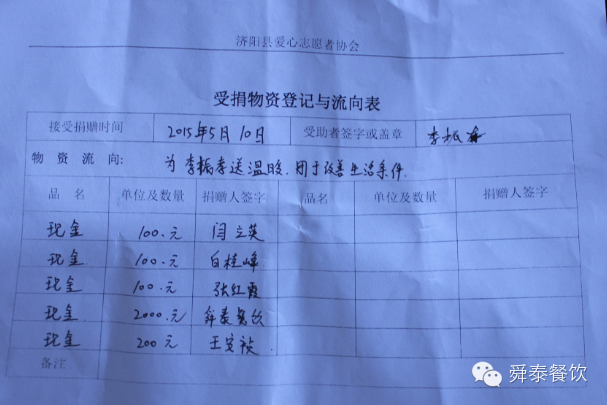 济阳县爱心志愿者协会
受捐物资登记与流向表
接受捐赠时间 2015年5月10日 受助者签字或盖章 李振
物资流向: 为李振孝送温暖,用于改善生活条件
品名 单位及数量 捐赠人签字 品名 单位及数量 捐赠人签字
现金 100.元 闫立英
现金 100.元 白桂峰
现金 100.元 张红霞
现金 2000.元 舜泰餐饮
现金 200元 王安
备注
舜泰餐饮